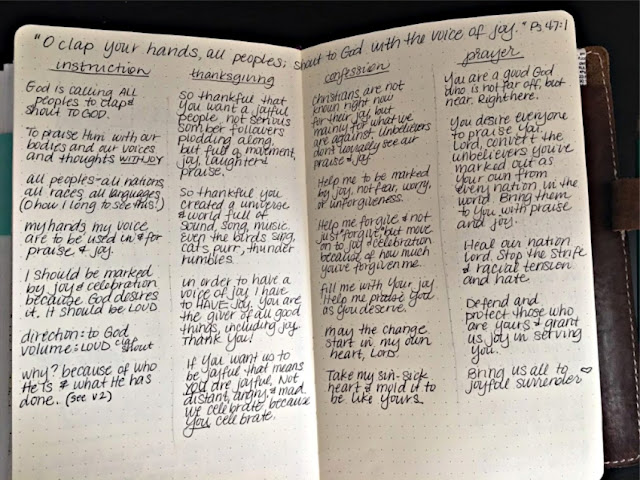 "O clap your hands, all peoples; shout to God with the voice of joy." Ps 47:1
instruction
God is calling ALL
peoples to clap &
shout TO GOD.
To praise Him with our
bodies and our voices
and thoughts WITH JOY
all peoples-all nations,
all races, all languages
(O how I long to see this!)
my hands my voice
are to be used in & for
praise & joy.
I should be marked
by joy & celebration
because God desires
it. It should be LOUD
direction: to God
volume: LOUD clap shout
why? because of who
He is & what He has
done. (see v2)
thanksgiving
So thankful that
you want a joyful
people, not serious
somber followers
plodding along,
but full of movement,
joy, laughter &
praise.
So thankful you
created a universe
& world full of
sound, song, music.
even the birds sing,
cats purr, thunder
rumbles.
in order to have a
voice of joy I have
to HAVE JOY. You are
the giver of all good
things, including joy
Thank you!
If you want us to
be joyful that means
you are joyful. Not
distant, angry, & mad.
we celebrate because
you celebrate.
confession
Christians are not
known right now
for their joy but
mainly for what we
are against. Unbelievers
don't usually see our
praise & joy
Help me to be marked
by joy, not fear, worry,
or unforgiveness.
Help me forgive & not
just "forgive" but move
on to joy & celebration
because of how much
you've forgiven me.
fill me with your joy
Help me praise God
as you deserve.
may the change
start in my own
heart, Lord.
Take my sin-sick
heart & mold it to
be like yours.
prayer
You are a good God
who is not far off, but
near. Right here.
You desire everyone
to praise you
Lord, convert the
unbelievers you've
marked out as
your own from
every nation in the
world. Bring them
to You with praise
and joy.
Heal our nation
Lord. Stop the strife
& racial tension
and hate.
Defend and
protect those who
are yours & grant
us joy in serving
you.
Bring us all to
joyful surrender